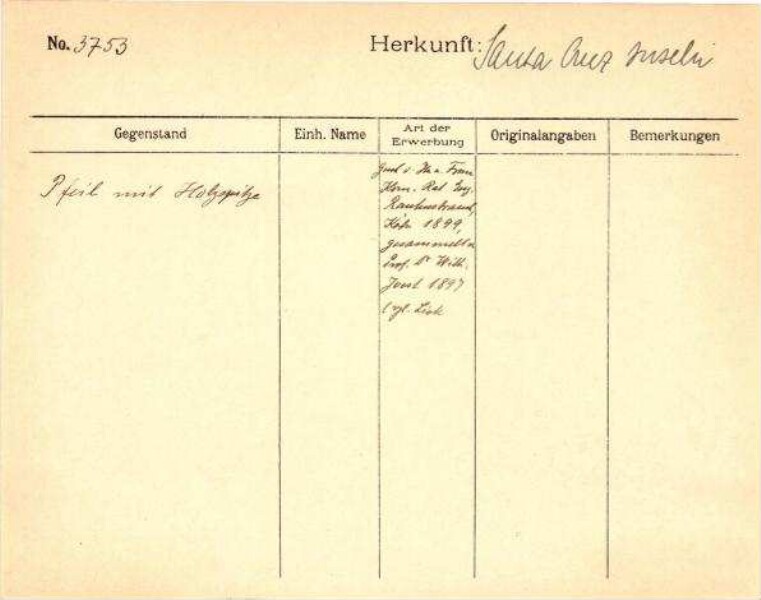 No. 3753 Herkunft: Santa Cruz Inseln
Gegenstand Einh. Name Art der Erwerbung Originalangaben Bemerkungen
Pfeil mit Holzspitze
Frau
Kom. Rat Eug.
Rautenstrauch,
Köln 1899,
gesammelt v.
Prof. Dr Wilh.
Joest 1897